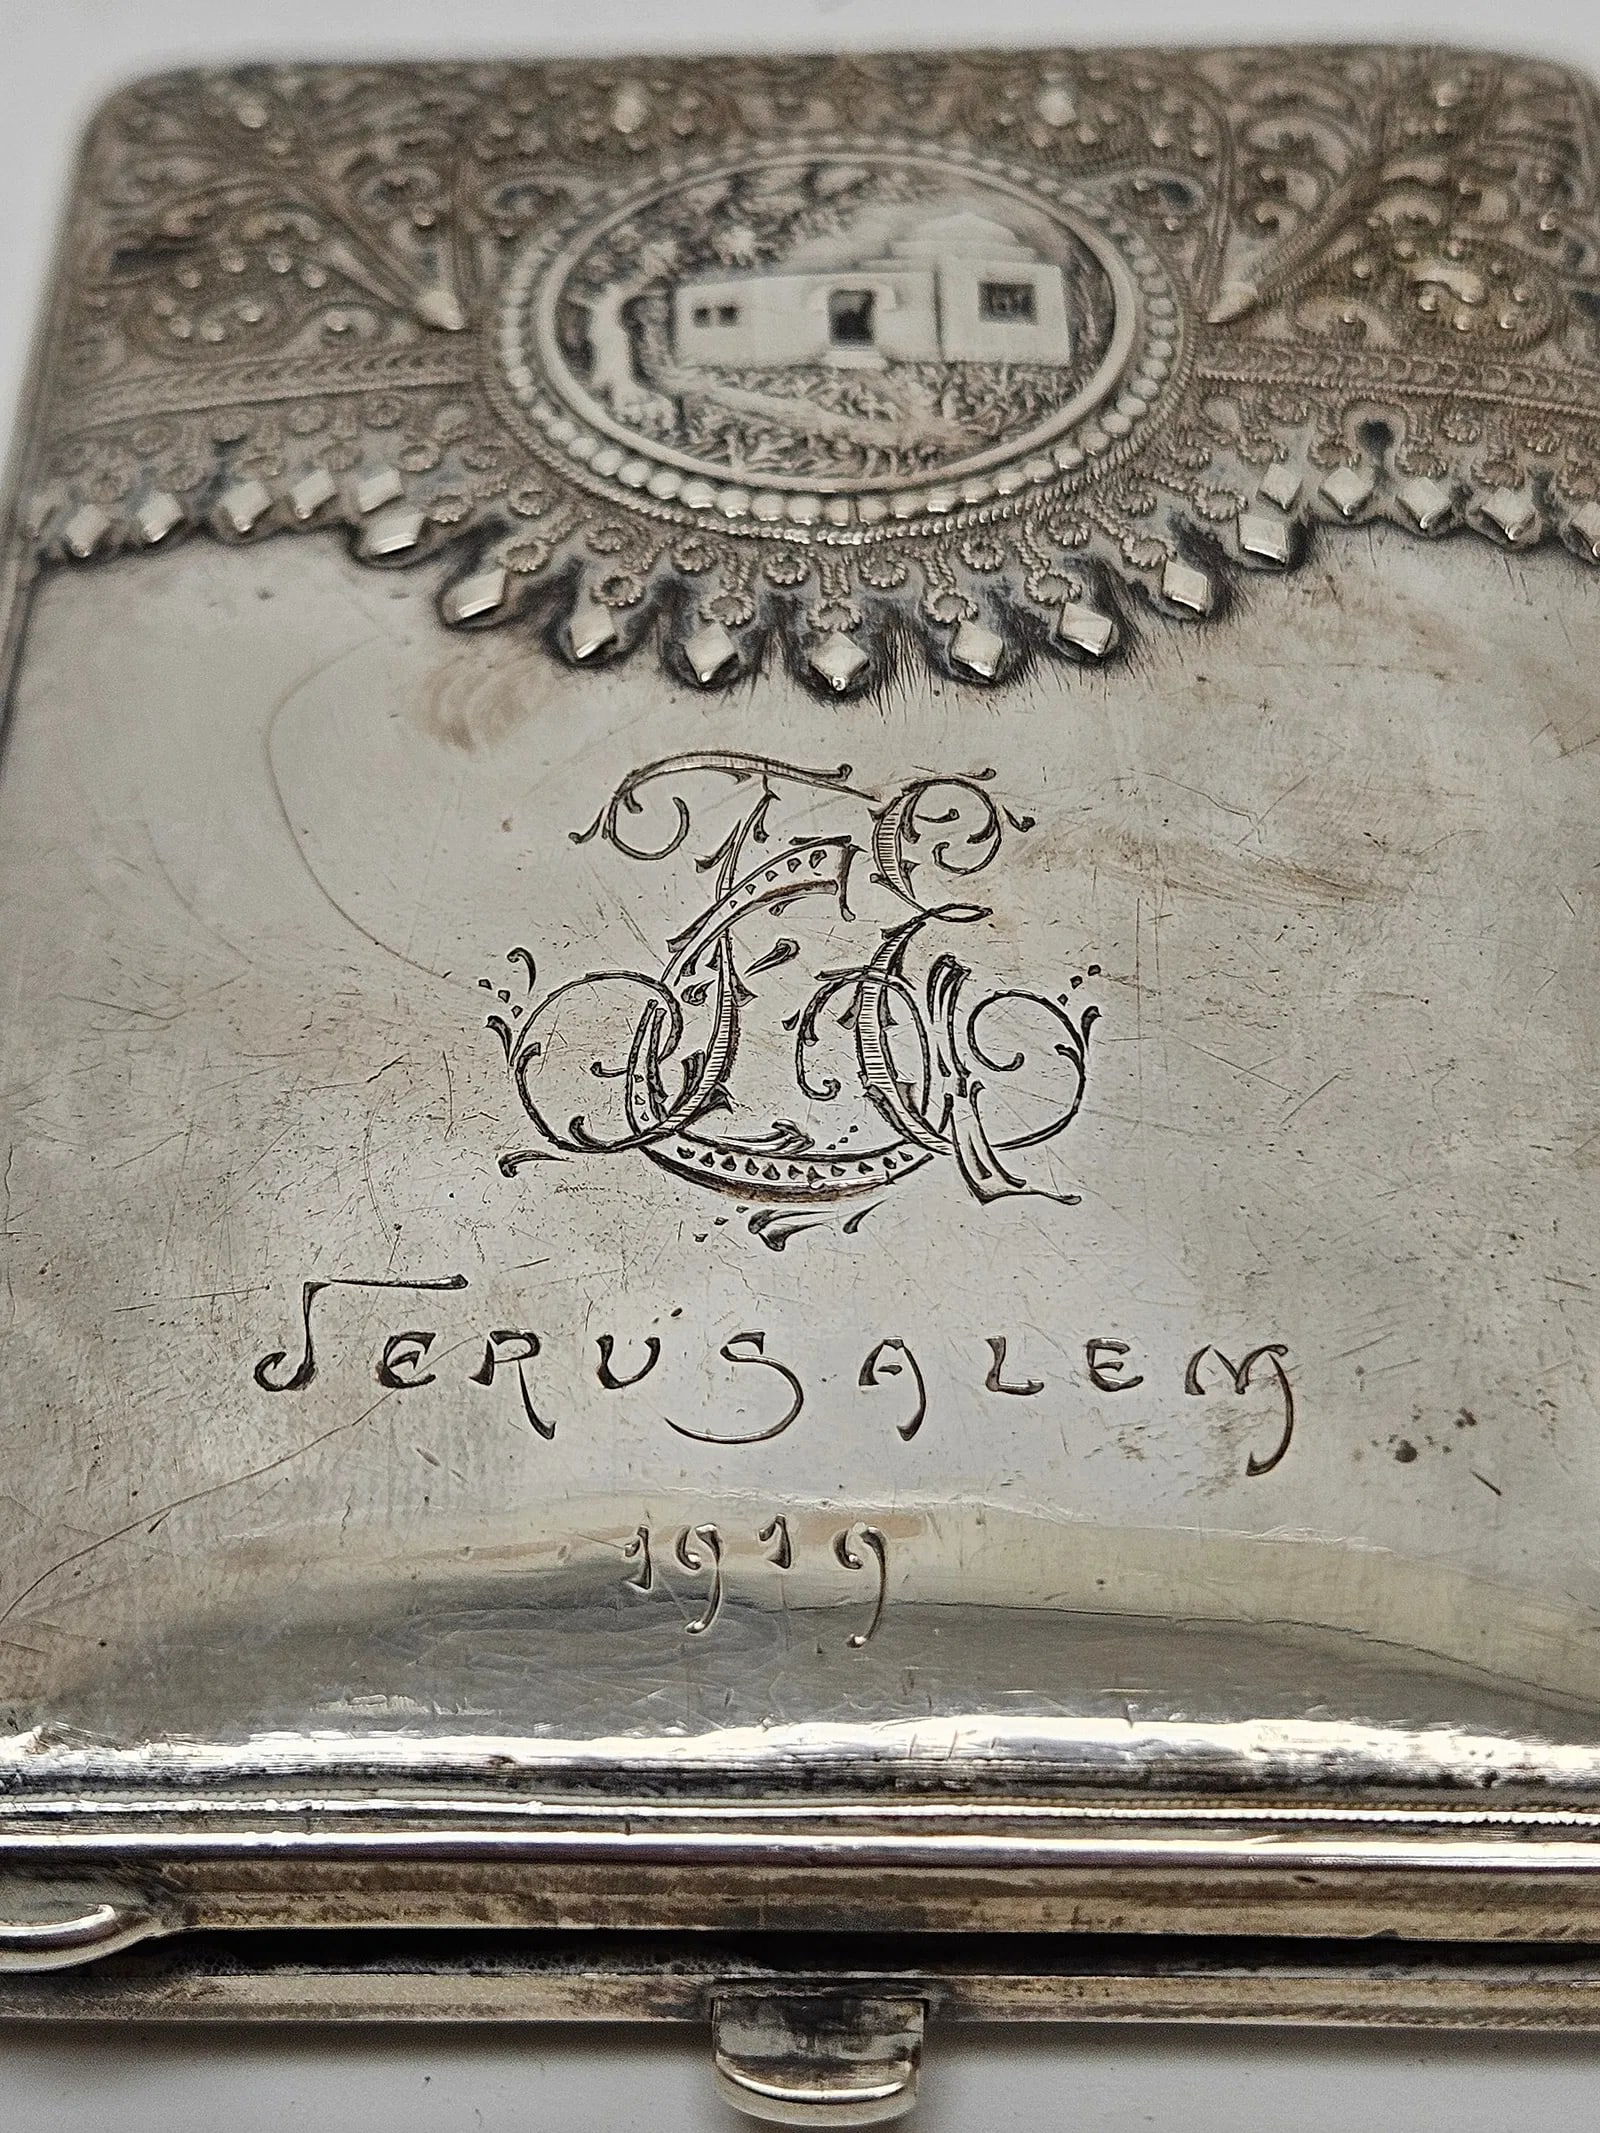 JERUSALEM
1919